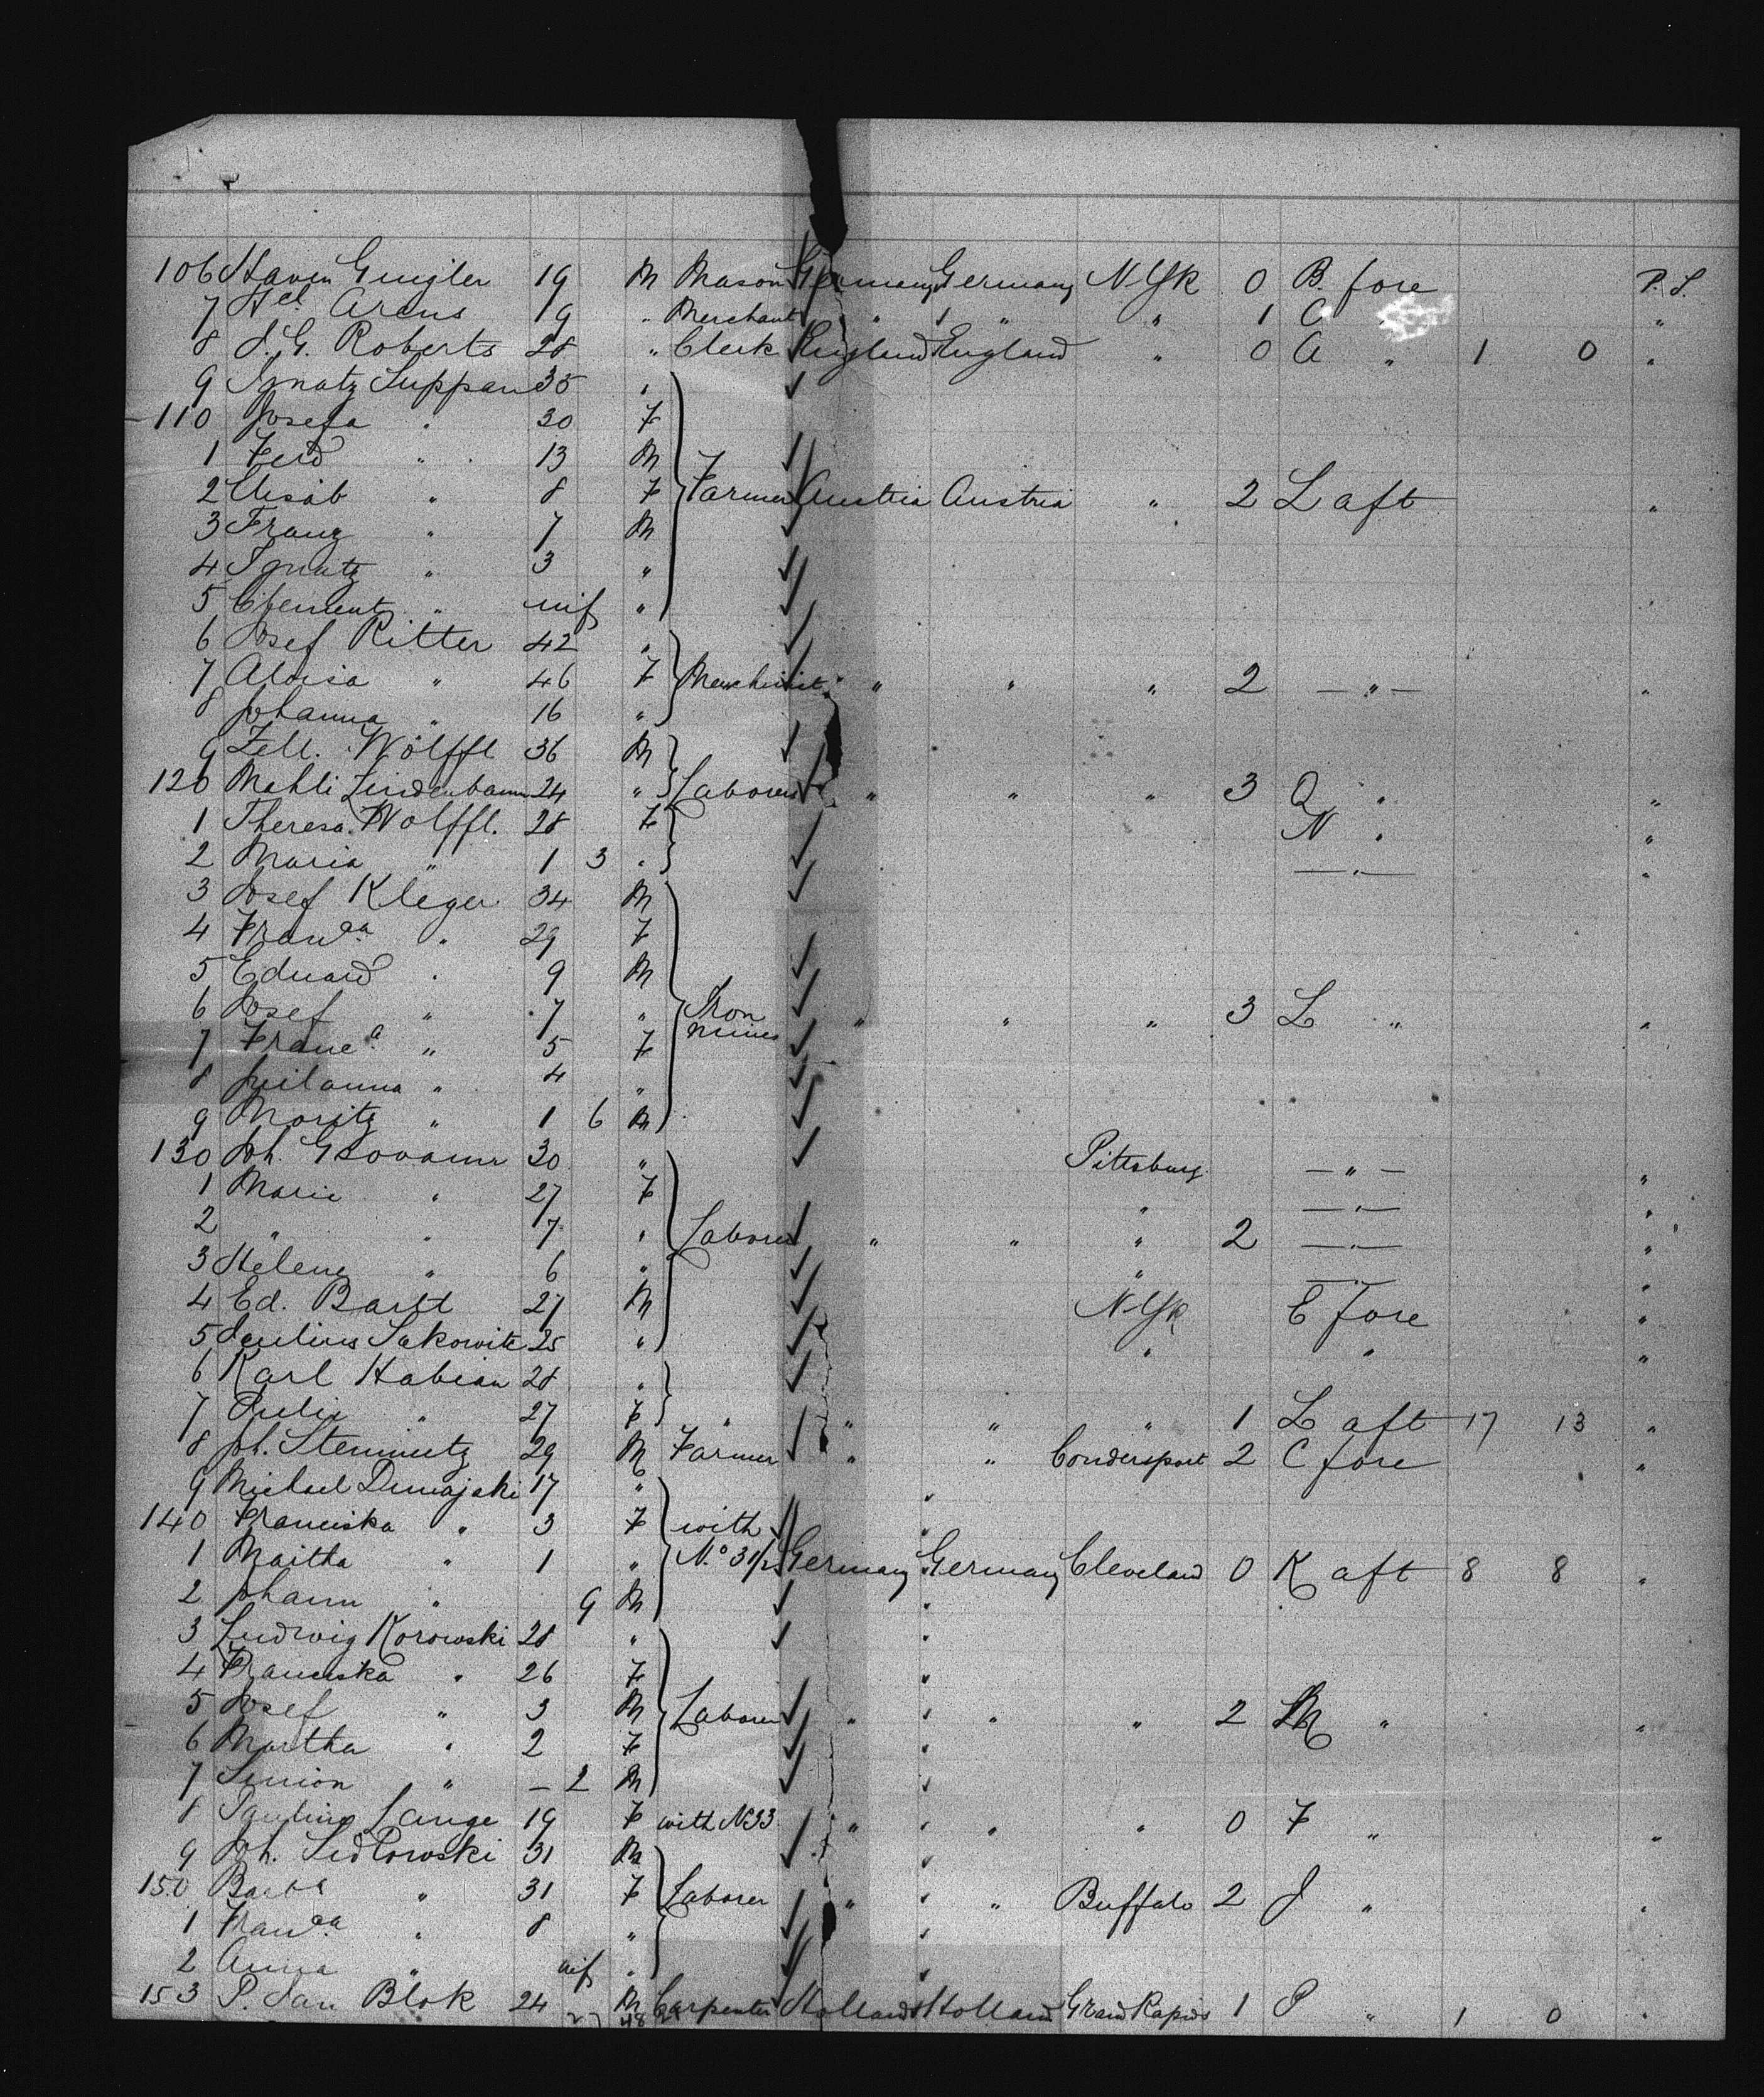 106 Guigler 19 M Mason Germany Germany NYk 0 B. fore P.S.
7 Arens 19 " Merchant " " " 1 C "
8 J. G. Roberts 28 " Clerk England England " 0 A " 1 0 "
9 Ignatz Suppan 35 "
110 Josefa " 30 F
1 Ferd " 13 M
2 Elisab " 8 F Farmer Austria Austria " 2 L aft "
3 Franz " 7 M
4 Ignatz " 3 "
5 Clement " inf "
6 Josef Ritter 42 "
7 Aloisa " 46 F Machinist " " " 2 — " — "
8 Johanna " 16 "
9 Zell. Wölffl 36 M
120 Mehli Lindenbaum 24 " Laborers " " " 3 Q " "
1 Theresa Wolffl. 28 F N " "
2 Maria " 1 3 " — " — "
3 Josef Kleger 34 M
4 Fran^ca " 29 F
5 Eduard " 9 M
6 Josef " 7 " Iron " " " 3 L " "
7 Franc^a " 5 F mines
8 Julianna " 4 "
9 Moritz " 1 6 M
130 Joh. 30 " Pittsburg — " — "
1 Marie " 27 F " — " — "
2 " " 7 " Laborer " " " 2 — " — "
3 Helene " 6 " " — " — "
4 Ed. Bartl 27 M NYk E fore "
5 Sakowitz 25 " " " "
6 Karl Habian 28 "
7 Julie " 27 F " " " " 1 L aft 17 13 "
8 Joh. Steinmetz 29 M Farmer " " Condersport 2 C fore "
9 Michael 17 "
140 Franciska " 3 F with
1 Martha " 1 " N.º Germany Germany Cleveland 0 K aft 8 8 "
2 Johann " 9 M
3 Ludwig Korowski 28 "
4 Franciska " 26 F
5 Josef " 3 M Laborer " " " 2 M " "
6 Martha " 2 F
7 Simion " — 2 M
8 Pauline Lange 19 F with N33 " " " 0 F " "
9 Joh. Sidlowski 31 M
150 Barb^a " 31 F Laborer " " Buffalo 2 J " "
1 Fran^ca " 8 "
2 Anna " inf "
153 P. Jan Blok 24 M Carpenter Holland Holland Grand Rapids 1 P " 1 0 "